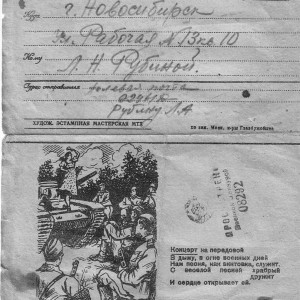 Куда г. Новосибирск
ул. Рабочая № 13 кв 10
Кому Л. Н. Рубиной.
Адрес отправителя полевая почта
Рубину Л. А
ХУДОЖ. ЭСТАМПНАЯ МАСТЕРСКАЯ
Концерт на передовой
В дыму, в огне военных дней
Нам песня, как винтовка, служит.
С веселой песней храбрый
дружит
И сердце открывает ей.